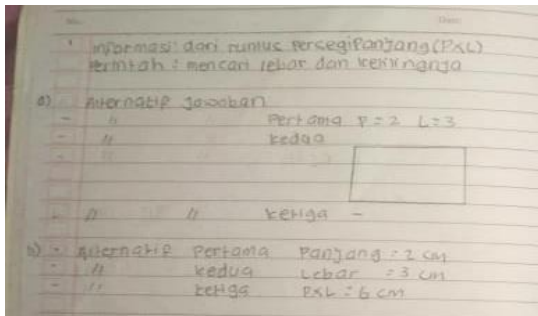 No.
Date:
Informasi: dari rumus persegipanjang (PxL)
Perintah : mencari lebar dan kelilingnya
a) Alternatif jawaban
- " Pertama P = 2 L = 3
- " kedua
- " "
- " " ketiga -
b) - Alternatif pertama Panjang = 2 cm
- " kedua Lebar = 3 cm
- " ketiga PxL = 6 cm